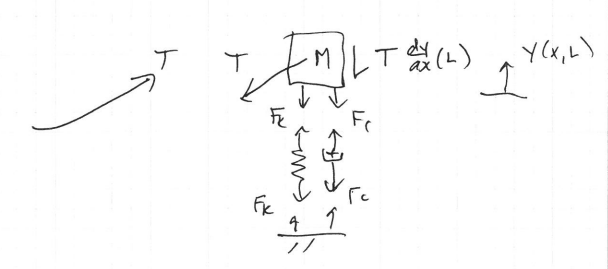 T T M T dy/dx (L) Y(x,L)
Fk Fc
Fk Fc